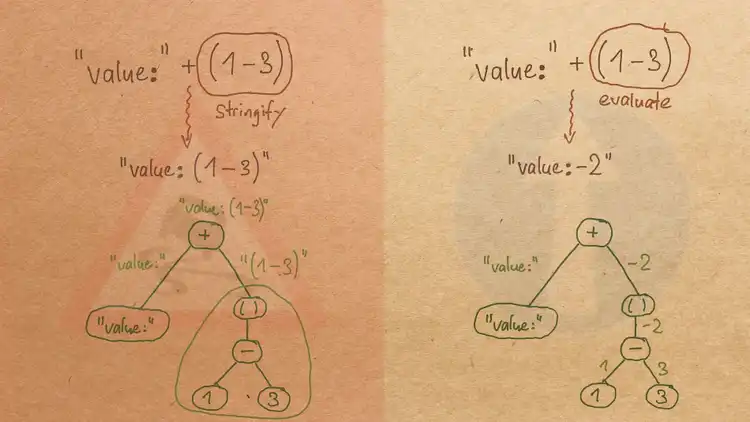 "value:" + (1-3)
stringify
"value: (1-3)"
"value: (1-3)"
+
"value:"
"(1-3)"
"value:"
( )
-
1
3
"value:" + (1-3)
evaluate
"value:-2"
+
"value:"
-2
"value:"
( )
-2
-
1
3
1
3